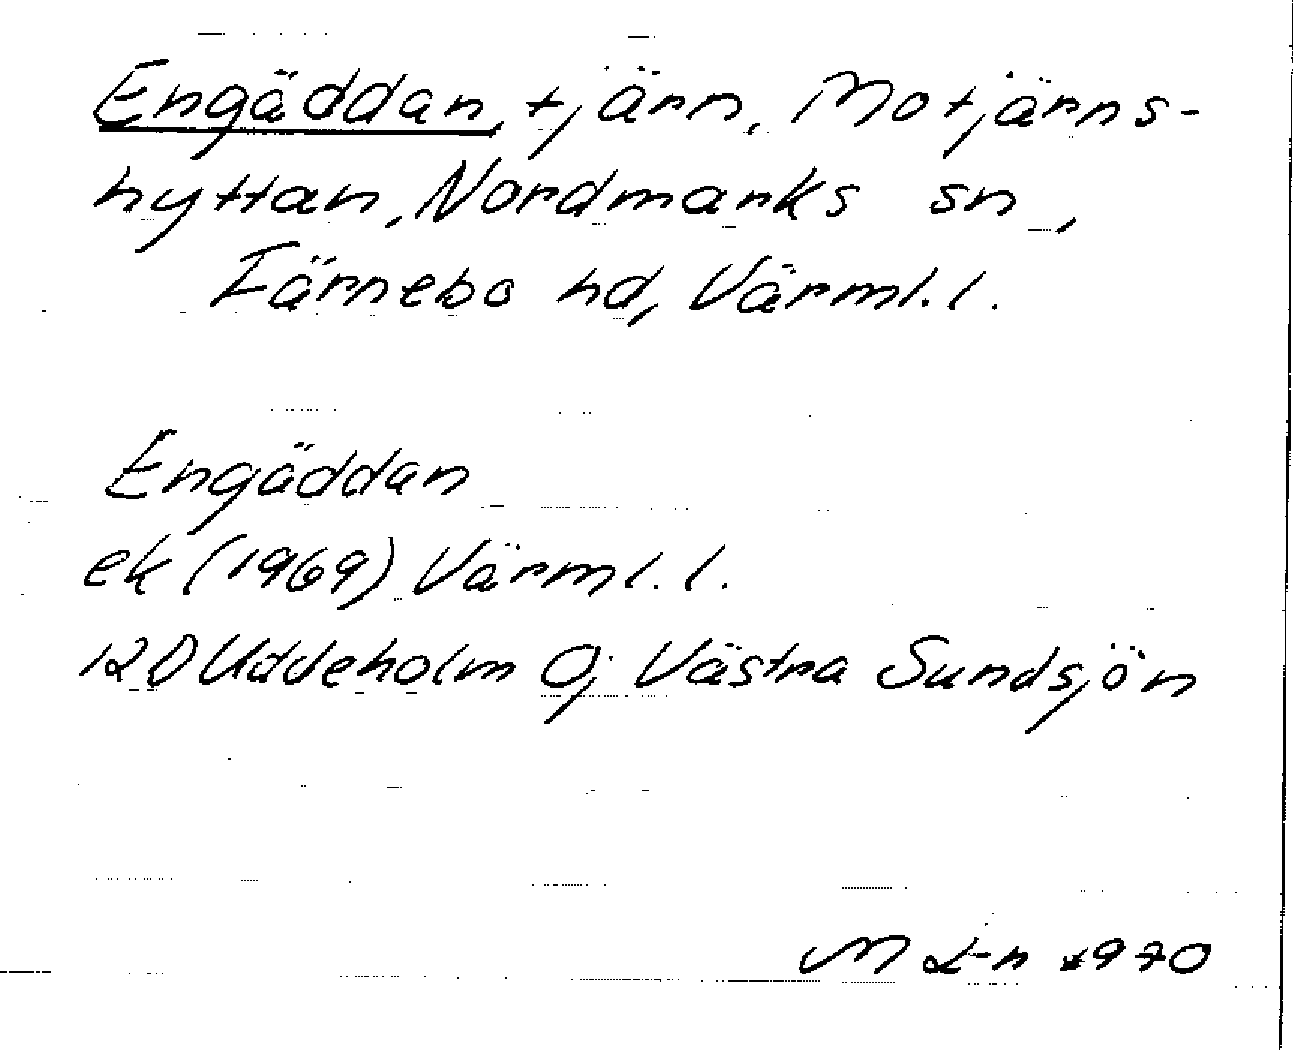 Engäddan, tjärn, Motjärns-
hyttan, Nordmarks sn,
Färnebo hd, Värml. l.
Engäddan
ek (1969) Värml. l.
12D Uddeholm 0j Västra Sundsjön
M L-n 1970